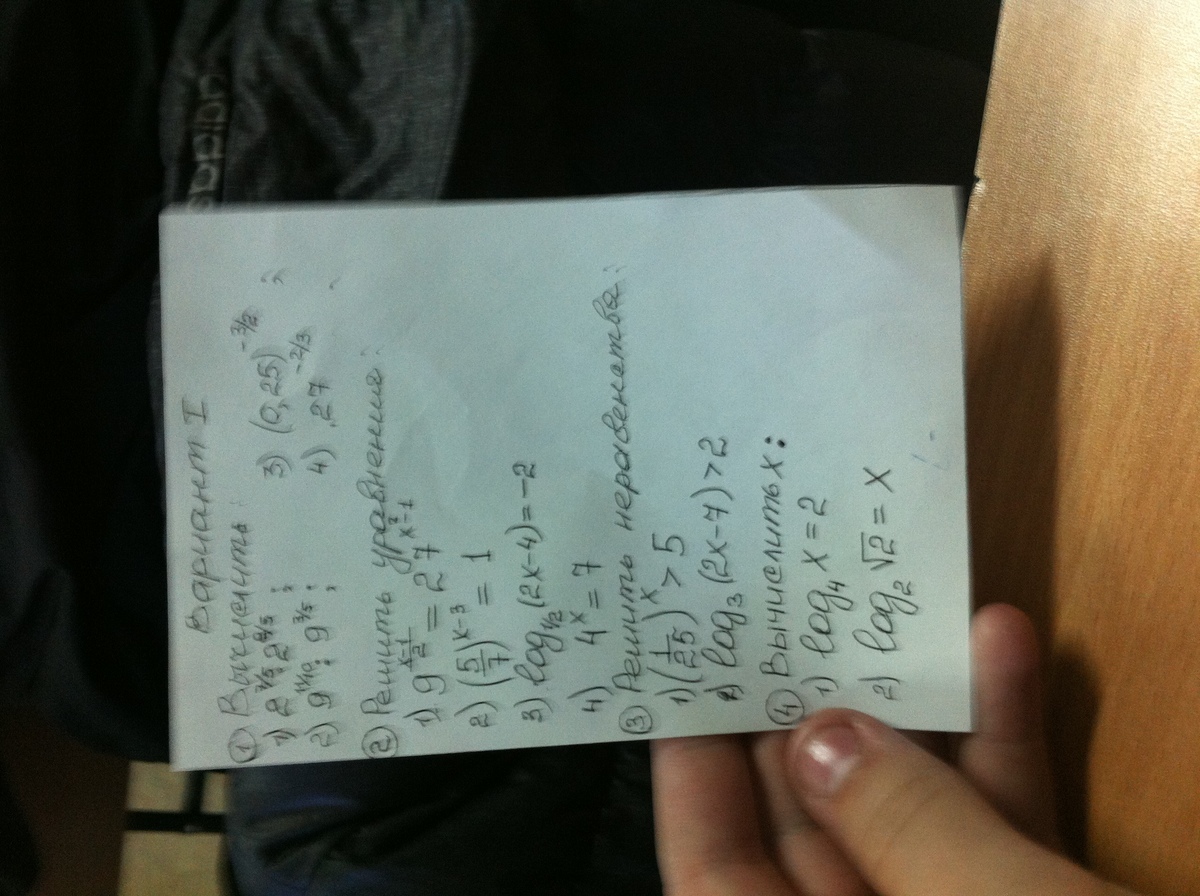 Вариант I
① Вычислить:
1) 2^{1/5} 2^{4/5};  3) (0,25)^{-3/2};
2) 9^{11/10} : 9^{3/5};  4) 27^{-2/3}
② Решить уравнения:
1) 9^{\frac{x-1}{2}} = 27^{x²-1}
2) (5/7)^{x-3} = 1
3) log_{1/2}(2x-4) = -2
4) 4^x = 7
③ Решить неравенства:
1) (1/25)^x > 5
2) log_3(2x-7) > 2
④ Вычислить x:
1) log_4 x = 2
2) log_2 √2 = x
adidas